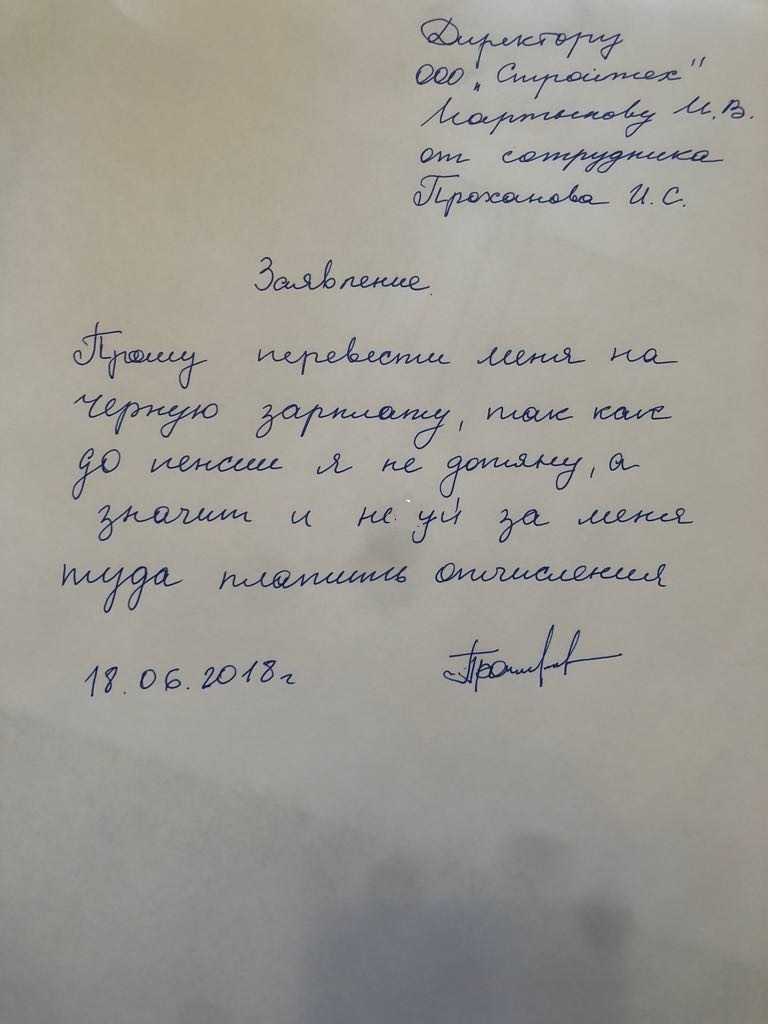 Директору
ООО "Стройтех"
Мартынову И.В.
от сотрудника
Проханова И.С.
Заявление.
Прошу перевести меня на
черную зарплату, так как
до пенсии я не дотяну, а
значит и не уй за меня
туда платить отчисления
18.06.2018г